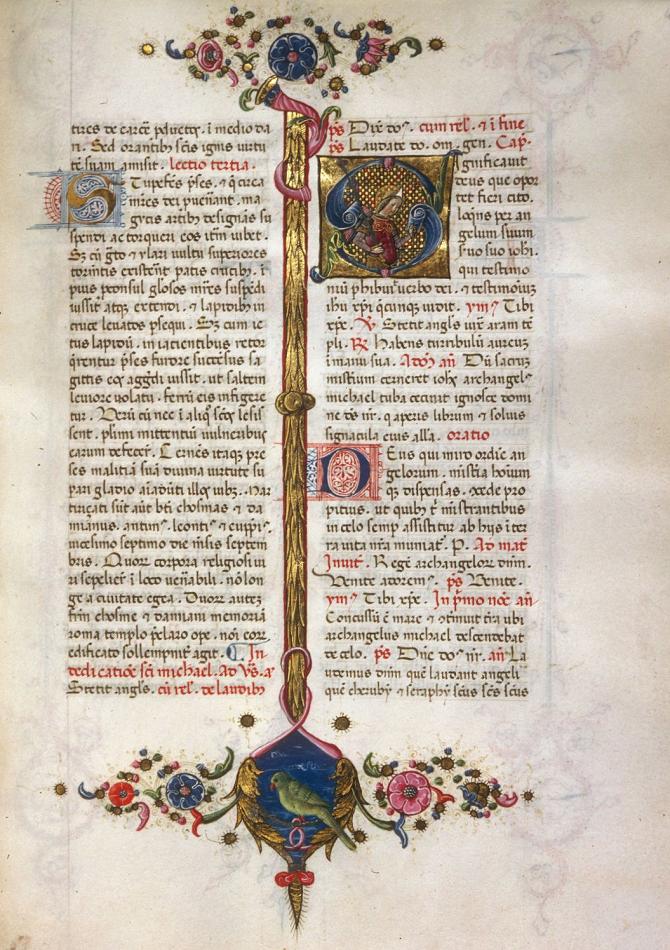 tires de carcē pducetꝫ. ī medio da
ri. Sed orantibꝫ scīs ignis virtu
tē suam amisit. lectio tertia.
Stupefcs pses. ⁊ q̄ circa
magicis artibꝫ designās su
spendi ac torqueri eos itm iubet.
Sꝫ cū gͦto ⁊ ylari vultu superiores
tormtis existēnt patis crucibꝫ. ī
pius ponsul glosos mr̄es suspēdi
iussit atqꝫ extendi. ⁊ lapidibꝫ in
cruce leuatos psequi. Sꝫ cum ic
tus lapidū. in iacientibus retor
q̄rentur pses furore succēsus sa
gittis eos aggͥdi iussit. ut saltem
leuiore uolatu. ferrū eis infigere
tur. Verū cū nec ī aliqͦ scōs lesis
sent. plimi mittentiū vulneribus
earum defecert̄. Cernēs itaqꝫ pre
ses malitiā suā diuina virtute su
pari gladio aīaduti illos iubꝫ. Mar
tiriçati sūt aūt bti chosmas ⁊ da
mianus. antimꝰ. leontiꝰ ⁊ euppiꝰ.
uicesimo septimo die mēsis septem
bris. Quorꝫ corpora religiosi ui
ri sepelierͭ ī loco uen̄abili. nō lon
ge a ciuitate egea. Quorꝫ autez
scōꝝ chosme ⁊ damiani memoriā
roma templo pclaro ope. nōi eorꝫ
edificato sollempnit̄ agit. ¶ In
dedicatiōe scī michael. Ad vꝫs. aͣ
Stetit angls. cū rel. de laudibꝫ
ps̄ Dix̄ doꝰ. cum rel. ⁊ ī fine
ps̄ Laudate do. om̄. gen. Capͪ.
Significauit
deus que opor
tet fieri cito.
loq̄ns per an
gelum suum
suo suo iohi.
qui testimo
niū phibuīt uerbo dei. ⁊ testimoiuꝫ
ihu xp̄i q̄cunqꝫ uidit. ymꝰ Tibi
xpe. ℣ Stetit angls iux̄ aram tē
pli. ℟ Habens turribulū aureuꝫ
ī manu sua. Ad ᷒ añ Dū sacruꝫ
mistium cerneret iohs archangelꝰ
michael tuba cecinit ignosce domi
ne ds̄ nr̄. q aperis librum ⁊ soluis
signacula eius alla. oratio
Deus qui miro ordie an
gelorum. mīstia hoīum
qꝫ dispensas. ꝯcede pro
pitius. ut quibꝫ tͥ ministrantibus
in celo semp assistitur ab hijs ī ter
ra vita nr̄a muniat̄. P. Ad mat̄
Inuit̄. Regē archangelorꝫ dn̄m.
Venite adoremꝰ. ps̄ Venite.
ymꝰ Tibi xpe. In pͥmo noc̄. añ
Concussū ē mare ⁊ ꝯtrmuit tͬra ubi
archangelus michael descendebat
de celo. ps̄ Dn̄e doꝰ nr̄. añ La
udemus dn̄m quē laudant angeli
quē cherubyn ⁊ seraphyn sc̄us sc̄us sc̄us